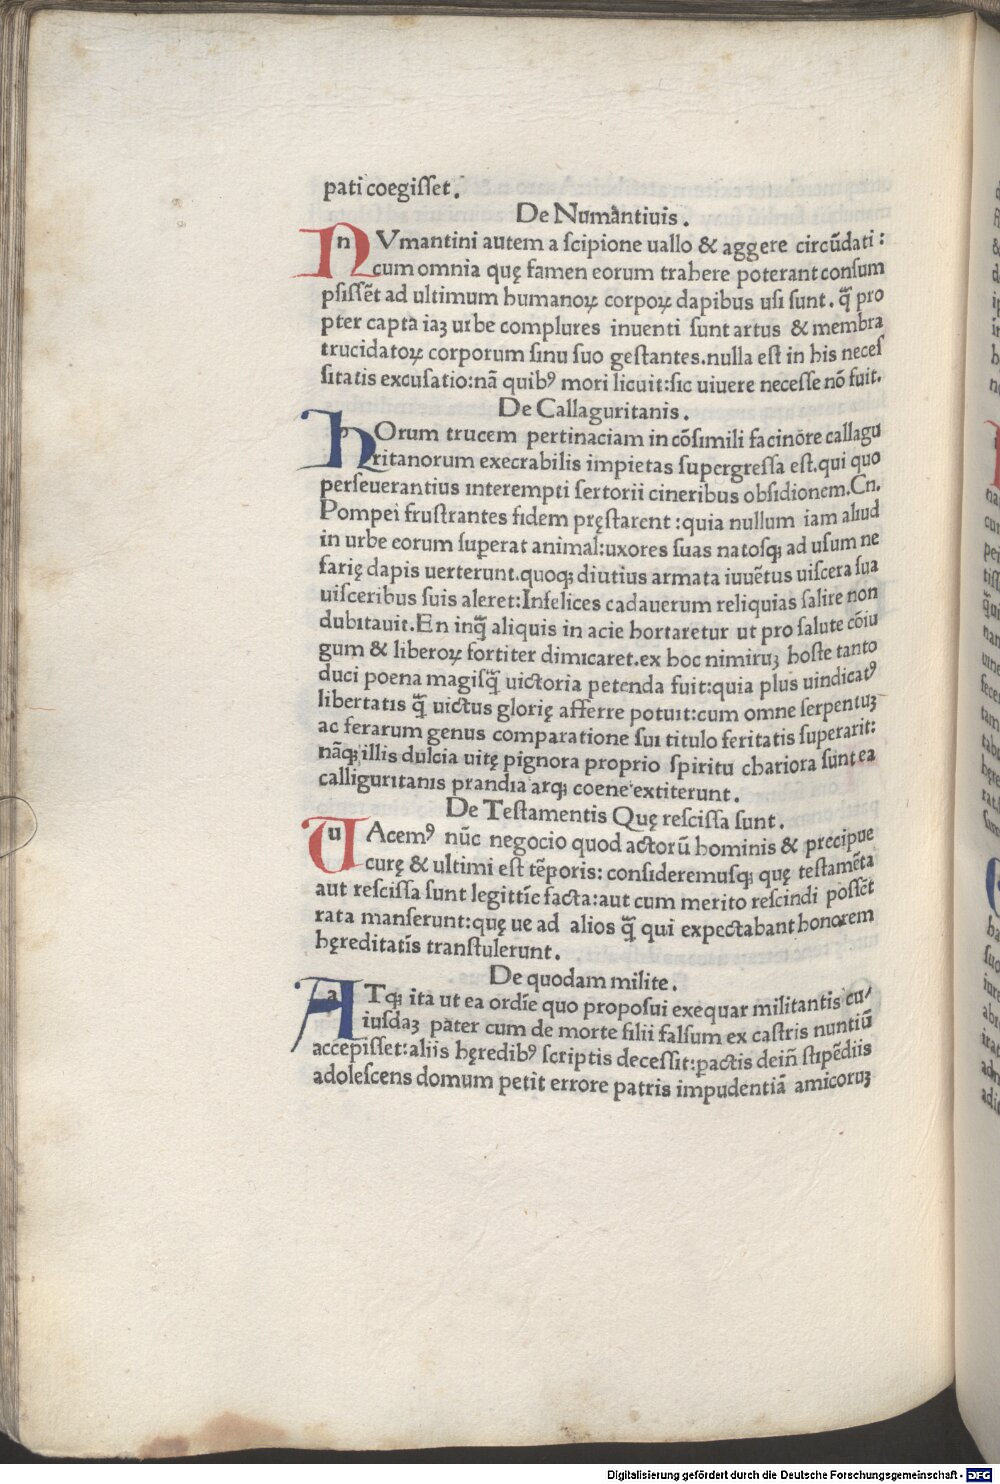 pati coegiſſet.
De Numantiuis.
nVmantini autem a ſcipione uallo & aggere circũdati:
cum omnia quę famen eorum trahere poterant conſum
pſiſſẽt ad ultimum humanoꝝ corpoꝝ dapibus uſi ſunt. q̃ pro
pter capta iaꝫ urbe complures inuenti ſunt artus & membra
trucidatoꝝ corporum ſinu ſuo geſtantes.nulla eſt in his neceſ
ſitatis excuſatio:nã quibꝰ mori licuit:ſic uiuere neceſſe nõ fuit.
De Callaguritanis.
hOrum trucem pertinaciam in cõſimili facinore callagu
ritanorum execrabilis impietas ſupergreſſa eſt.qui quo
perſeuerantius interempti ſertorii cineribus obſidionem.Cn.
Pompei fruſtrantes fidem pręſtarent :quia nullum iam aliud
in urbe eorum ſuperat animal:uxores ſuas natoſqꝫ ad uſum ne
farię dapis uerterunt.quoqꝫ diutius armata iuuẽtus uiſcera ſua
uiſceribus ſuis aleret:Infelices cadauerum reliquias ſalire non
dubitauit.En inq̃ aliquis in acie hortaretur ut pro ſalute cõiu
gum & liberoꝝ fortiter dimicaret.ex hoc nimiruꝫ hoſte tanto
duci poena magiſq̃ uictoria petenda fuit:quia plus uindicatꝰ
libertatis q̃ uictus glorię afferre potuit:cum omne ſerpentuꝫ
ac ferarum genus comparatione ſui titulo feritatis ſuperarit:
nãqꝫ illis dulcia uitę pignora proprio ſpiritu chariora ſunt ea
calliguritanis prandia atqꝫ coene extiterunt.
De Teſtamentis Quę reſciſſa ſunt.
uAcemꝰ nũc negocio quod actorũ hominis & precipue
curę & ultimi eſt tẽporis: conſideremuſqꝫ quę teſtamẽta
aut reſciſſa ſunt legittĩe facta:aut cum merito reſcindi poſſẽt
rata manſerunt:quę ue ad alios q̃ qui expectabant honorem
hęreditatis tranſtulerunt.
De quodam milite.
aTqꝫ ita ut ea ordĩe quo propoſui exequar militantis cu/
iuſdaꝫ pater cum de morte filii falſum ex caſtris nuntiũ
accepiſſet:aliis hęredibꝰ ſcriptis deceſſit:pactis dein̄ ſtipẽdiis
adoleſcens domum petit errore patris impudentiã amicoruꝫ
Digitalisierung gefördert durch die Deutsche Forschungsgemeinschaft - DFG